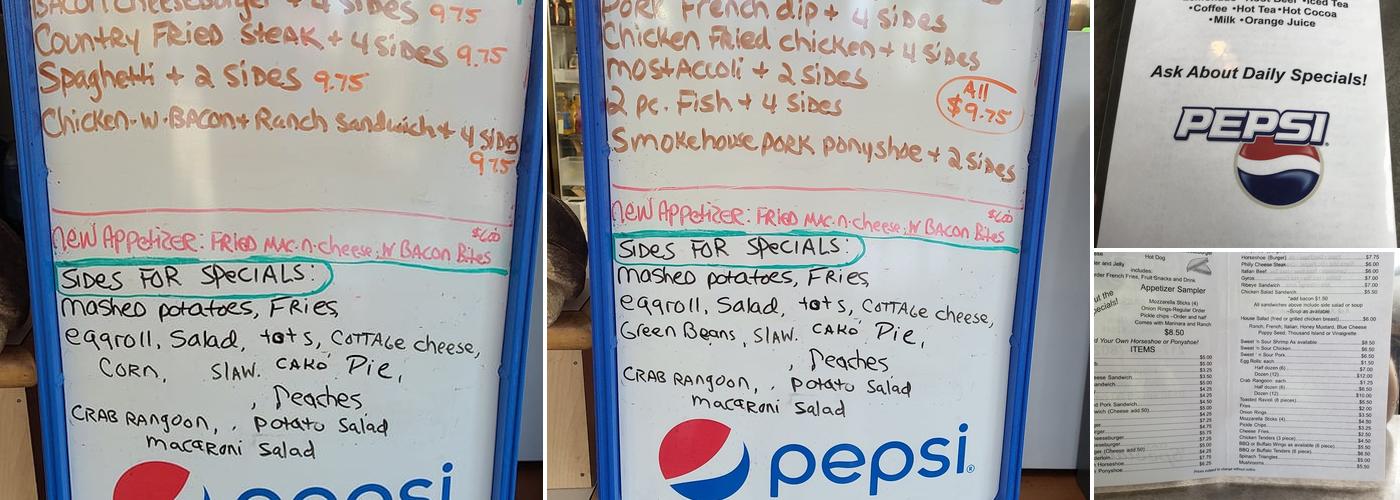 Bacon Cheeseburger + 4 sides 9.75
Country Fried Steak + 4 sides 9.75
Spaghetti + 2 sides 9.75
Chicken-w-Bacon + Ranch Sandwich + 4 sides
9.75
New Appetizer: Fried Mac-n-cheese, w Bacon Bites $6.00
SIDES FOR SPECIALS:
mashed potatoes, Fries,
eggroll, Salad, tots, COTTAGE cheese,
CORN, SLAW. CAKE Pie,
, Peaches
CRAB RANGOON, , potato Salad
macaroni Salad
pepsi
Pork French dip + 4 sides
Chicken Fried chicken + 4 sides
mostAccoli + 2 sides
2 pc. Fish + 4 sides
All
$9.75
Smokehouse pork ponyshoe + 2 sides
New Appetizer: Fried Mac-n-cheese, w Bacon Bites $6.00
SIDES FOR SPECIALS:
mashed potatoes, Fries,
eggroll, Salad, tots, COTTAGE cheese,
Green Beans, SLAW. CAKE Pie,
, Peaches
CRAB RANGOON, , potato Salad
macaroni Salad
pepsi
•Coffee •Hot Tea •Hot Cocoa
•Milk •Orange Juice
Ask About Daily Specials!
PEPSI
Hot Dog
includes:
French Fries, Fruit Snacks and Drink
Appetizer Sampler
Mozzarella Sticks (4)
Onion Rings-Regular Order
Pickle chips -Order and half
Comes with Marinara and Ranch
$8.50
Your Own Horseshoe or Ponyshoe!
ITEMS
Horseshoe (Burger) $7.75
Philly Cheese Steak $6.00
Italian Beef $6.00
Gyros $7.00
Ribeye Sandwich $7.00
Chicken Salad Sandwich $5.50
*add bacon $1.50
All sandwiches above include side salad or soup
~Soup as available
House Salad (fried or grilled chicken breast) $6.00
Ranch, French, Italian, Honey Mustard, Blue Cheese
Poppy Seed, Thousand Island or Vinaigrette
Sweet 'n Sour Shrimp As available $8.50
Sweet 'n Sour Chicken $6.50
Sweet 'n Sour Pork $6.50
Egg Rolls: each $1.50
Half dozen (6) $7.00
Dozen (12) $12.00
Crab Rangoon: each $1.25
Half dozen (6) $6.50
Dozen (12) $10.00
Toasted Ravioli (8 pieces) $5.50
Fries $2.00
Onion Rings $3.50
Mozzarella Sticks (4) $4.50
Pickle Chips $3.25
Cheese Fries $2.50
Chicken Tenders (3 piece) $4.50
BBQ or Buffalo Wings as available (6 piece) $5.50
BBQ or Buffalo Tenders (6 piece) $6.50
Spinach Triangles $5.00
Mushrooms $5.50